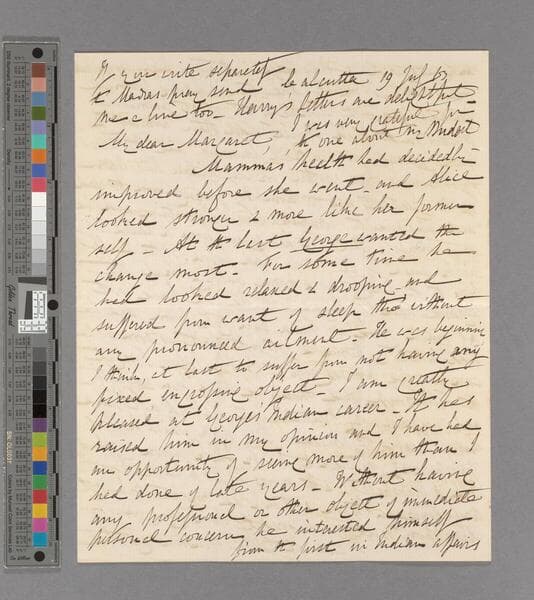 If you write separately
to Madras pray send Calcutta 19 July 63
me a line too. Henry's letters are delightful
I was very grateful for
My dear Margaret, the one about my Budget
Mamma's health had decidedly
improved before she went - and Alice
looked stronger & more like her former
self - At the last George wanted the
change most - For some time he
had looked relaxed & drooping - and
suffered from want of sleep tho' without
any pronounced ailment - He was beginning
I think, at last to suffer from not having any
fixed engrossing object - I am greatly
pleased at George's Indian career - It has
raised him in my opinion and I have had
an opportunity of seeing more of him than I
had done of late years - Without having
any professional or other object of immediate
personal concern, he interested himself
from the first in Indian affairs